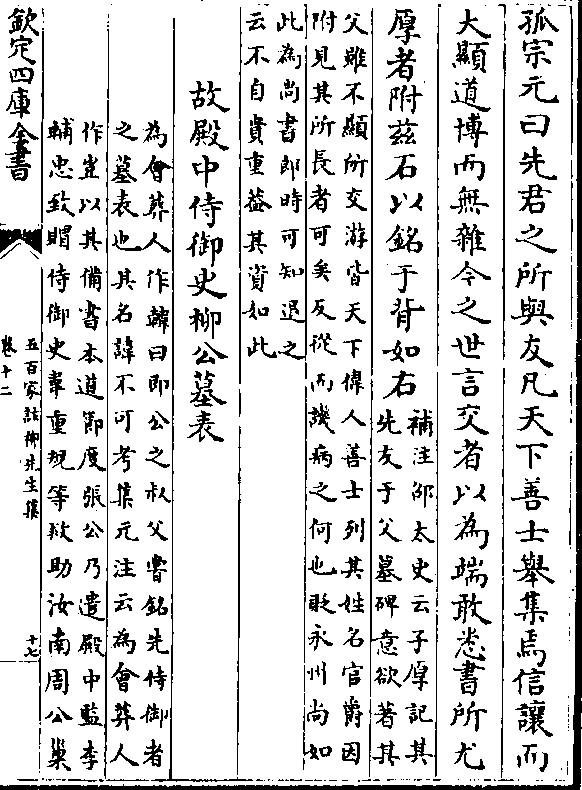 孤宗元曰先君之所與友凡天下善士舉集焉信讓而
大顯道博而無雜今之世言交者以為端敢悉書所尤
厚者附兹石以銘于背如右
補注邵太史云子厚記其
先友于父墓碑意欲著其
父雖不顯所交游皆天下偉人善士列其姓名官爵因
附見其所長者可矣反從而譏病之何也貶永州尚如
此為尚書郎時可知退之
云不自貴重葢其資如此
故殿中侍御史柳公墓表
為會葬人作韓曰即公之叔父嘗銘先侍御者
之墓表也其名諱不可考集元注云為會葬人
作豈以其備書本道節度張公乃遣殿中監李
輔忠致賵侍御史韋重規等救助汝南周公巢
欽定四庫全書
五百家註柳先生集
卷十二
十七